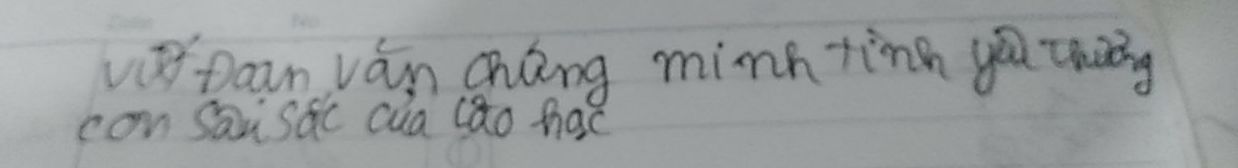 viết Đoạn văn chứng minh tình yêu thương
con sâu sắc của lão hạc